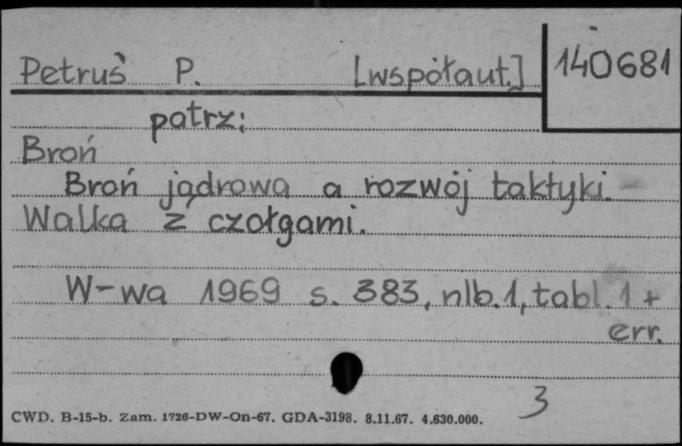 Petruś P. [współaut.] 140681
patrz:
Broń
Broń jądrowa a rozwój taktyki.
Walka z czołgami.
W-wa 1969 s. 383, nlb. 1, tabl. 1 +
err.
3
CWD. B-15-b. Zam. 1726-DW-On-67. GDA-3198. 8.11.67. 4.630.000.